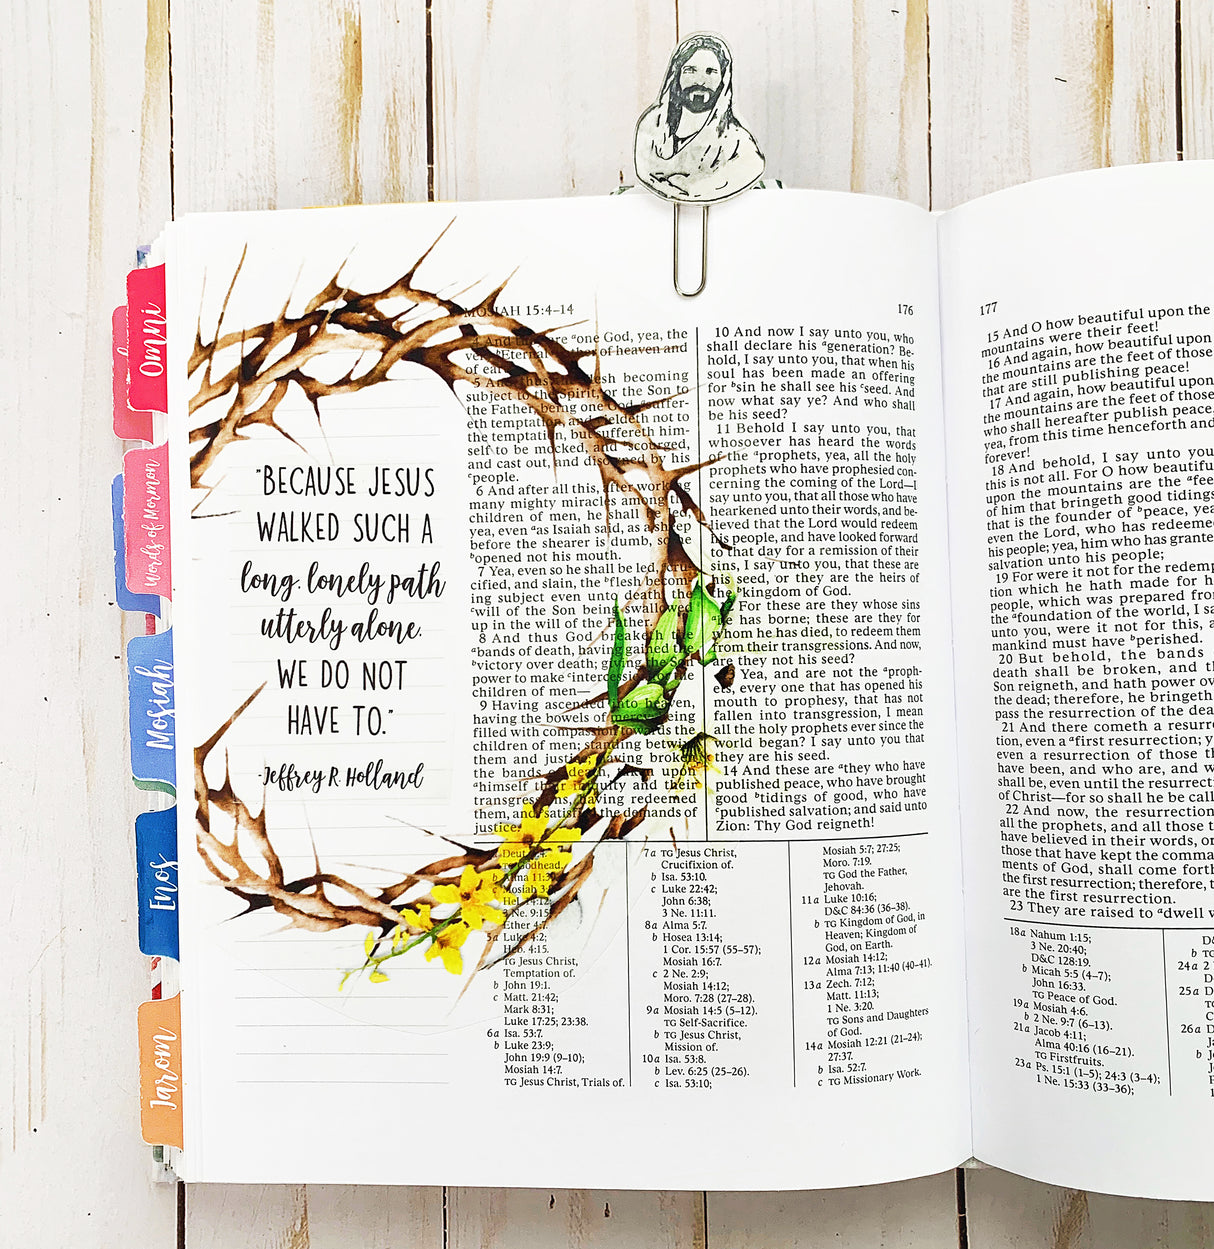 Omni
Words of Mormon
Mosiah
Enos
Jarom
"BECAUSE JESUS
WALKED SUCH A
long, lonely path
utterly alone,
WE DO NOT
HAVE TO."
-Jeffrey R. Holland
MOSIAH 15:4–14
176
4 And they are ᵃone God, yea, the
very ᵇEternal Father of heaven and
of earth.
5 And thus the flesh becoming
subject to the Spirit, or the Son to
the Father, being one God, ᵃsuffer-
eth temptation, and yieldeth not to
the temptation, but suffereth him-
self to be mocked, and ᵇscourged,
and cast out, and disowned by his
ᶜpeople.
6 And after all this, after working
many mighty miracles among the
children of men, he shall be led,
yea, even ᵃas Isaiah said, as a sheep
before the shearer is dumb, so he
ᵇopened not his mouth.
7 Yea, even so he shall be led, ᵃcru-
cified, and slain, the ᵇflesh becom-
ing subject even unto death, the
ᶜwill of the Son being swallowed
up in the will of the Father.
8 And thus God breaketh the
ᵃbands of death, having gained the
ᵇvictory over death; giving the Son
power to make ᶜintercession for the
children of men—
9 Having ascended into heaven,
having the bowels of mercy; being
filled with compassion towards the
children of men; standing betwixt
them and justice; having broken
the bands of death, taken upon
ᵃhimself their iniquity and their
transgressions, having redeemed
them, and ᵇsatisfied the demands of
justice.
10 And now I say unto you, who
shall declare his ᵃgeneration? Be-
hold, I say unto you, that when his
soul has been made an offering
for ᵇsin he shall see his ᶜseed. And
now what say ye? And who shall
be his seed?
11 Behold I say unto you, that
whosoever has heard the words
of the ᵃprophets, yea, all the holy
prophets who have prophesied con-
cerning the coming of the Lord—I
say unto you, that all those who have
hearkened unto their words, and be-
lieved that the Lord would redeem
his people, and have looked forward
to that day for a remission of their
sins, I say unto you, that these are
his seed, or they are the heirs of
the ᵇkingdom of God.
For these are they whose sins
ᵃhe has borne; these are they for
whom he has died, to redeem them
from their transgressions. And now,
are they not his seed?
Yea, and are not the ᵃproph-
ets, every one that has opened his
mouth to prophesy, that has not
fallen into transgression, I mean
all the holy prophets ever since the
world began? I say unto you that
they are his seed.
14 And these are ᵃthey who have
published peace, who have brought
good ᵇtidings of good, who have
ᶜpublished salvation; and said unto
Zion: Thy God reigneth!
a Deut.
TG Godhead.
b Alma 11:
c Mosiah 3:8
Hel. 14:12;
3 Ne. 9:15
Ether 4:7.
5a Luke 4:2;
Heb. 4:15.
TG Jesus Christ,
Temptation of.
b John 19:1.
c Matt. 21:42;
Mark 8:31;
Luke 17:25; 23:38.
6a Isa. 53:7.
b Luke 23:9;
John 19:9 (9–10);
Mosiah 14:7.
TG Jesus Christ, Trials of.
7a TG Jesus Christ,
Crucifixion of.
b Isa. 53:10.
c Luke 22:42;
John 6:38;
3 Ne. 11:11.
8a Alma 5:7.
b Hosea 13:14;
1 Cor. 15:57 (55–57);
Mosiah 16:7.
c 2 Ne. 2:9;
Mosiah 14:12;
Moro. 7:28 (27–28).
9a Mosiah 14:5 (5–12).
TG Self-Sacrifice.
b TG Jesus Christ,
Mission of.
10a Isa. 53:8.
b Lev. 6:25 (25–26).
c Isa. 53:10;
Mosiah 5:7; 27:25;
Moro. 7:19.
TG God the Father,
Jehovah.
11a Luke 10:16;
D&C 84:36 (36–38).
b TG Kingdom of God, in
Heaven; Kingdom of
God, on Earth.
12a Mosiah 14:12;
Alma 7:13; 11:40 (40–41).
13a Zech. 7:12;
Matt. 11:13;
1 Ne. 3:20.
TG Sons and Daughters
of God.
14a Mosiah 12:21 (21–24);
27:37.
b Isa. 52:7.
c TG Missionary Work.
177
15 And O how beautiful upon the
mountains were their feet!
16 And again, how beautiful upon
the mountains are the feet of those
that are still publishing peace!
17 And again, how beautiful upon
the mountains are the feet of those
who shall hereafter publish peace,
yea, from this time henceforth and
forever!
18 And behold, I say unto you,
this is not all. For O how beautiful
upon the mountains are the ᵃfeet
of him that bringeth good tidings
that is the founder of ᵇpeace, yea
even the Lord, who has redeemed
his people; yea, him who has granted
salvation unto his people;
19 For were it not for the redemp
tion which he hath made for his
people, which was prepared from
the ᵃfoundation of the world, I say
unto you, were it not for this, a
mankind must have ᵇperished.
20 But behold, the bands
death shall be broken, and th
Son reigneth, and hath power ov
the dead; therefore, he bringeth
pass the resurrection of the dea
21 And there cometh a resurre
tion, even a ᵃfirst resurrection; y
even a resurrection of those th
have been, and who are, and w
shall be, even until the resurrecti
of Christ—for so shall he be calle
22 And now, the resurrection
all the prophets, and all those t
have believed in their words, or
those that have kept the comma
ments of God, shall come forth
the first resurrection; therefore, t
are the first resurrection.
23 They are raised to ᵃdwell w
18a Nahum 1:15;
3 Ne. 20:40;
D&C 128:19.
b Micah 5:5 (4–7);
John 16:33.
TG Peace of God.
19a Mosiah 4:6.
b 2 Ne. 9:7 (6–13).
21a Jacob 4:11;
Alma 40:16 (16–21).
TG Firstfruits.
23a Ps. 15:1 (1–5); 24:3 (3–4);
1 Ne. 15:33 (33–36);
D&
b TG
24a 2
D
25a D
26a D